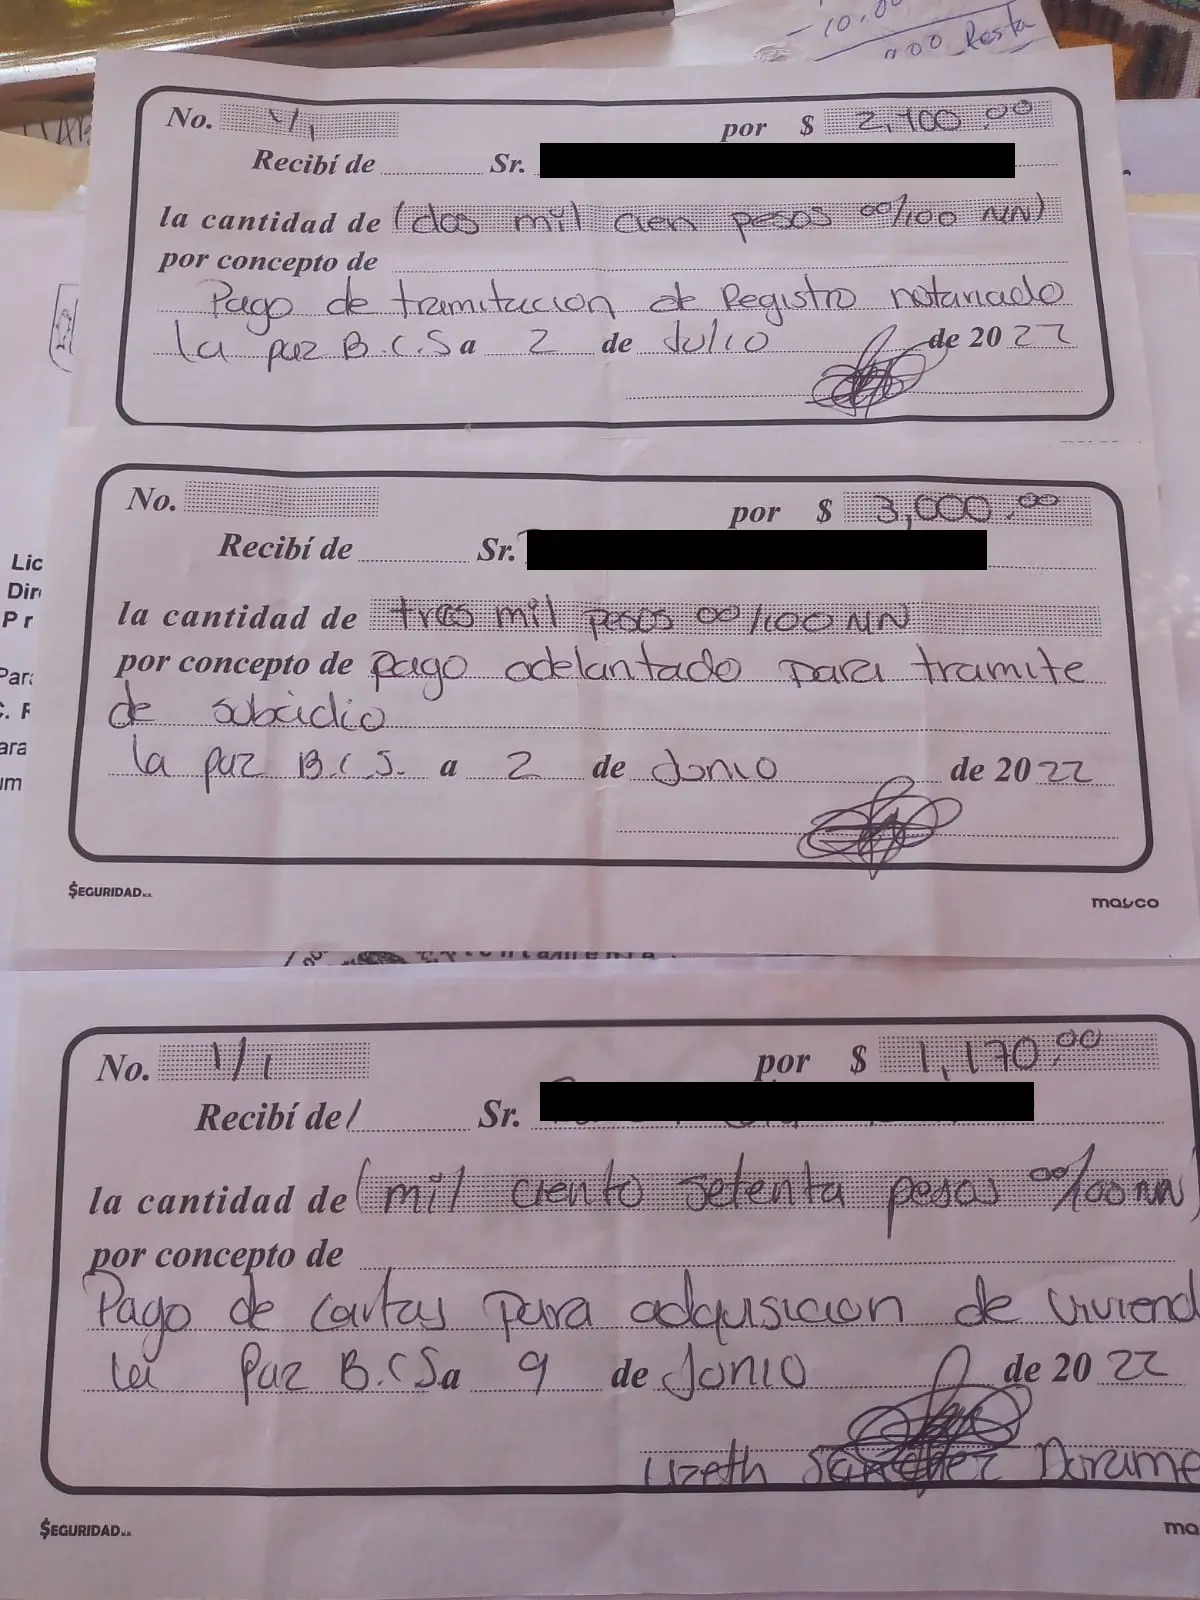 - 10,00
900 Resta
No. 1/1 por $ 2,100.00
Recibí de Sr.
la cantidad de (dos mil cien pesos 00/100 MN)
por concepto de
Pago de tramitacion de Registro notariado
la paz B.C.S a 2 de Julio de 2022
No. por $ 3,000.00
Recibí de Sr.
la cantidad de tres mil pesos 00/100 MN
por concepto de pago adelantado para tramite
de subcidio
la paz B.C.S. a 2 de Junio de 2022
$EGURIDAD
masco
Lic
Dir
Pr
Par
C. F
ara
um
No. 1/1 por $ 1,170.00
Recibí de/ Sr.
la cantidad de (mil ciento setenta pesos 00/100 MN)
por concepto de
Pago de cartas para adquisicion de viviend
la Paz B.C.S a 9 de Junio de 2022
Lizeth Sánchez Durame
$EGURIDAD
ma